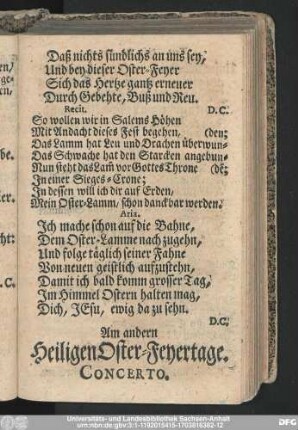 Daß nichts sündlichs an uns sey,
Und bey dieser Oster-Feyer
Sich das Hertze gantz erneuer
Durch Gebehte, Buß und Reu.
Recit. D.C.
So wollen wir in Salems Höhen
Mit Andacht dieses Fest begehen, (den;
Das Lamm hat Leu und Drachen überwun-
Das Schwache hat den Starcken angebun-
Nun steht das Lam̃ vor Gottes Throne (dē;
In einer Sieges-Crone;
In dessen will ich dir auf Erden,
Mein Oster-Lamm, schon danckbar werden.
Aria.
Ich mache schon auf die Bahne,
Dem Oster-Lamme nach zugehn,
Und folge täglich seiner Fahne
Von neuen geistlich aufzustehn,
Damit ich bald komm grosser Tag,
Im Himmel Ostern halten mag,
Dich, JEsu, ewig da zu sehn.
D.C.
Am andern
Heiligen Oster-Feyertage.
CONCERTO.
Universitäts- und Landesbibliothek Sachsen-Anhalt
urn:nbn:de:gbv:3:1-1192015415-1703816382-12
DFG